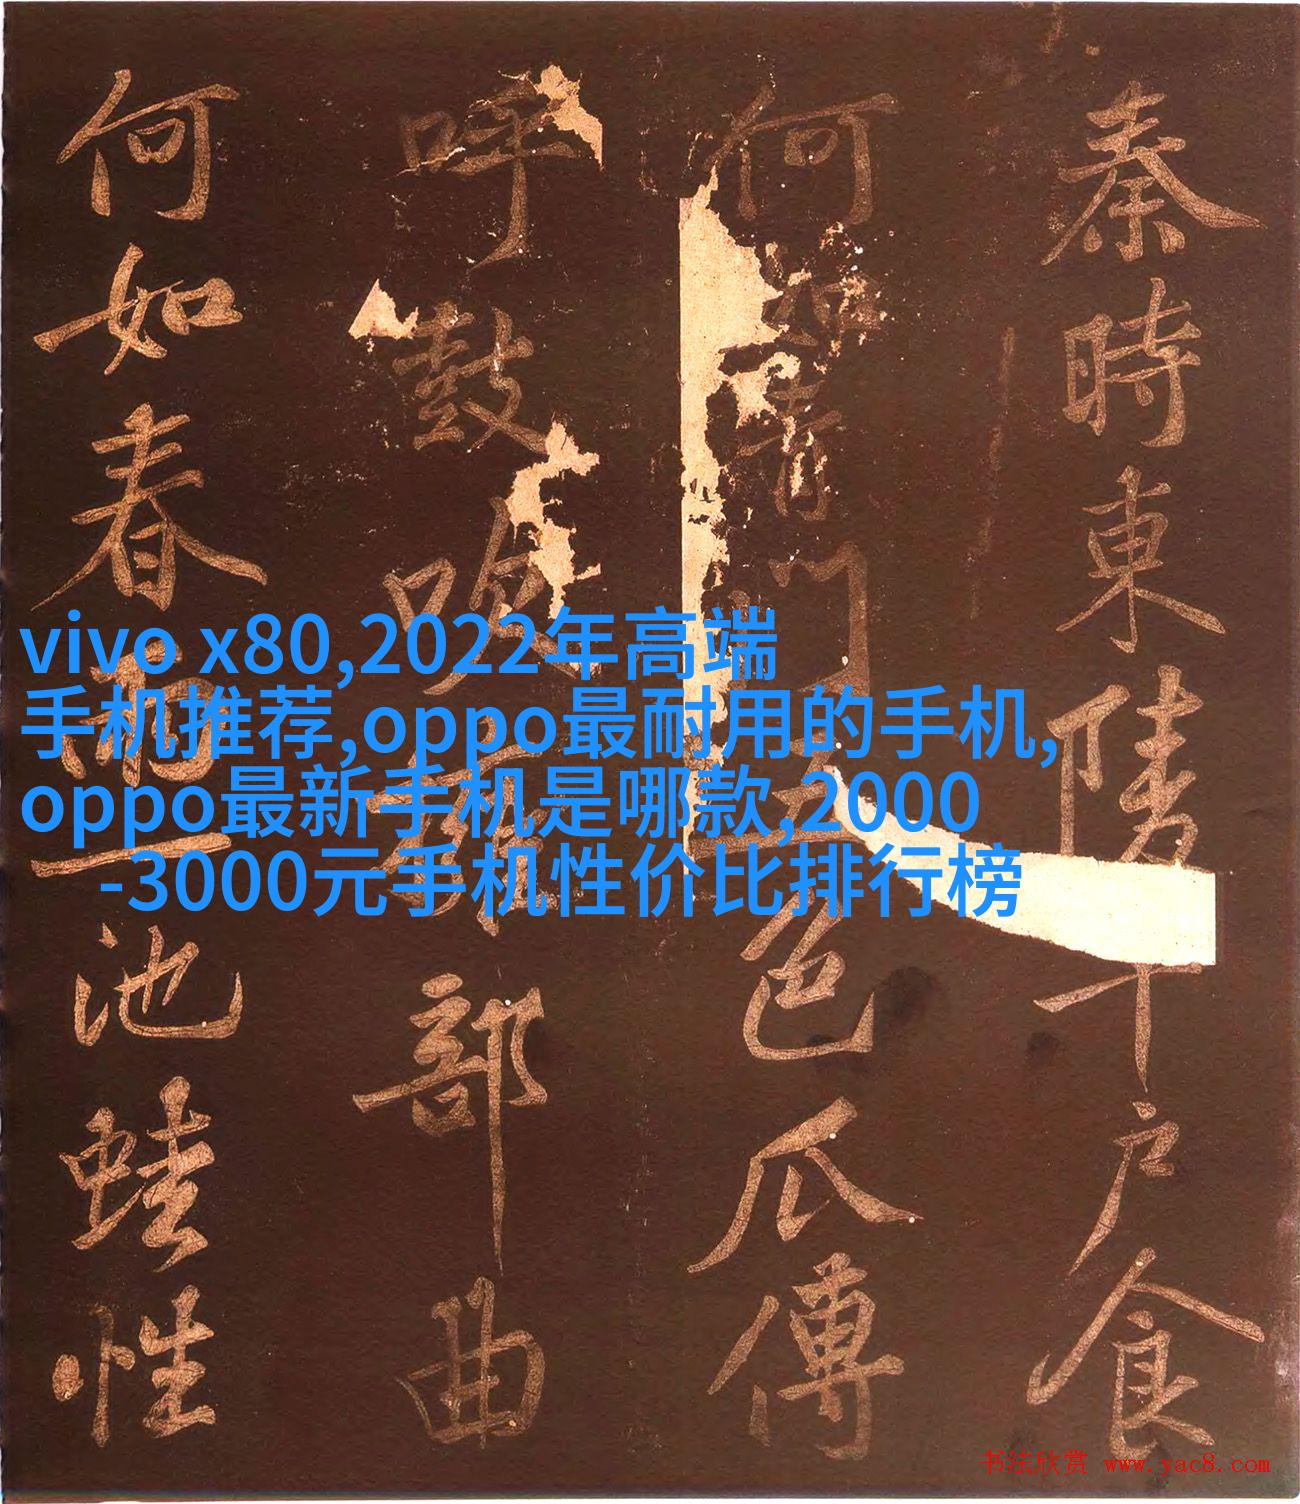 秦時東陵千戶食
何如青門五色瓜傳
呼鼓吹部曲
何如春雨一池蛙性
vivo x80,2022年高端
手机推荐,oppo最耐用的手机,
oppo最新手机是哪款,2000
-3000元手机性价比排行榜
书法欣赏 www.yac8.com